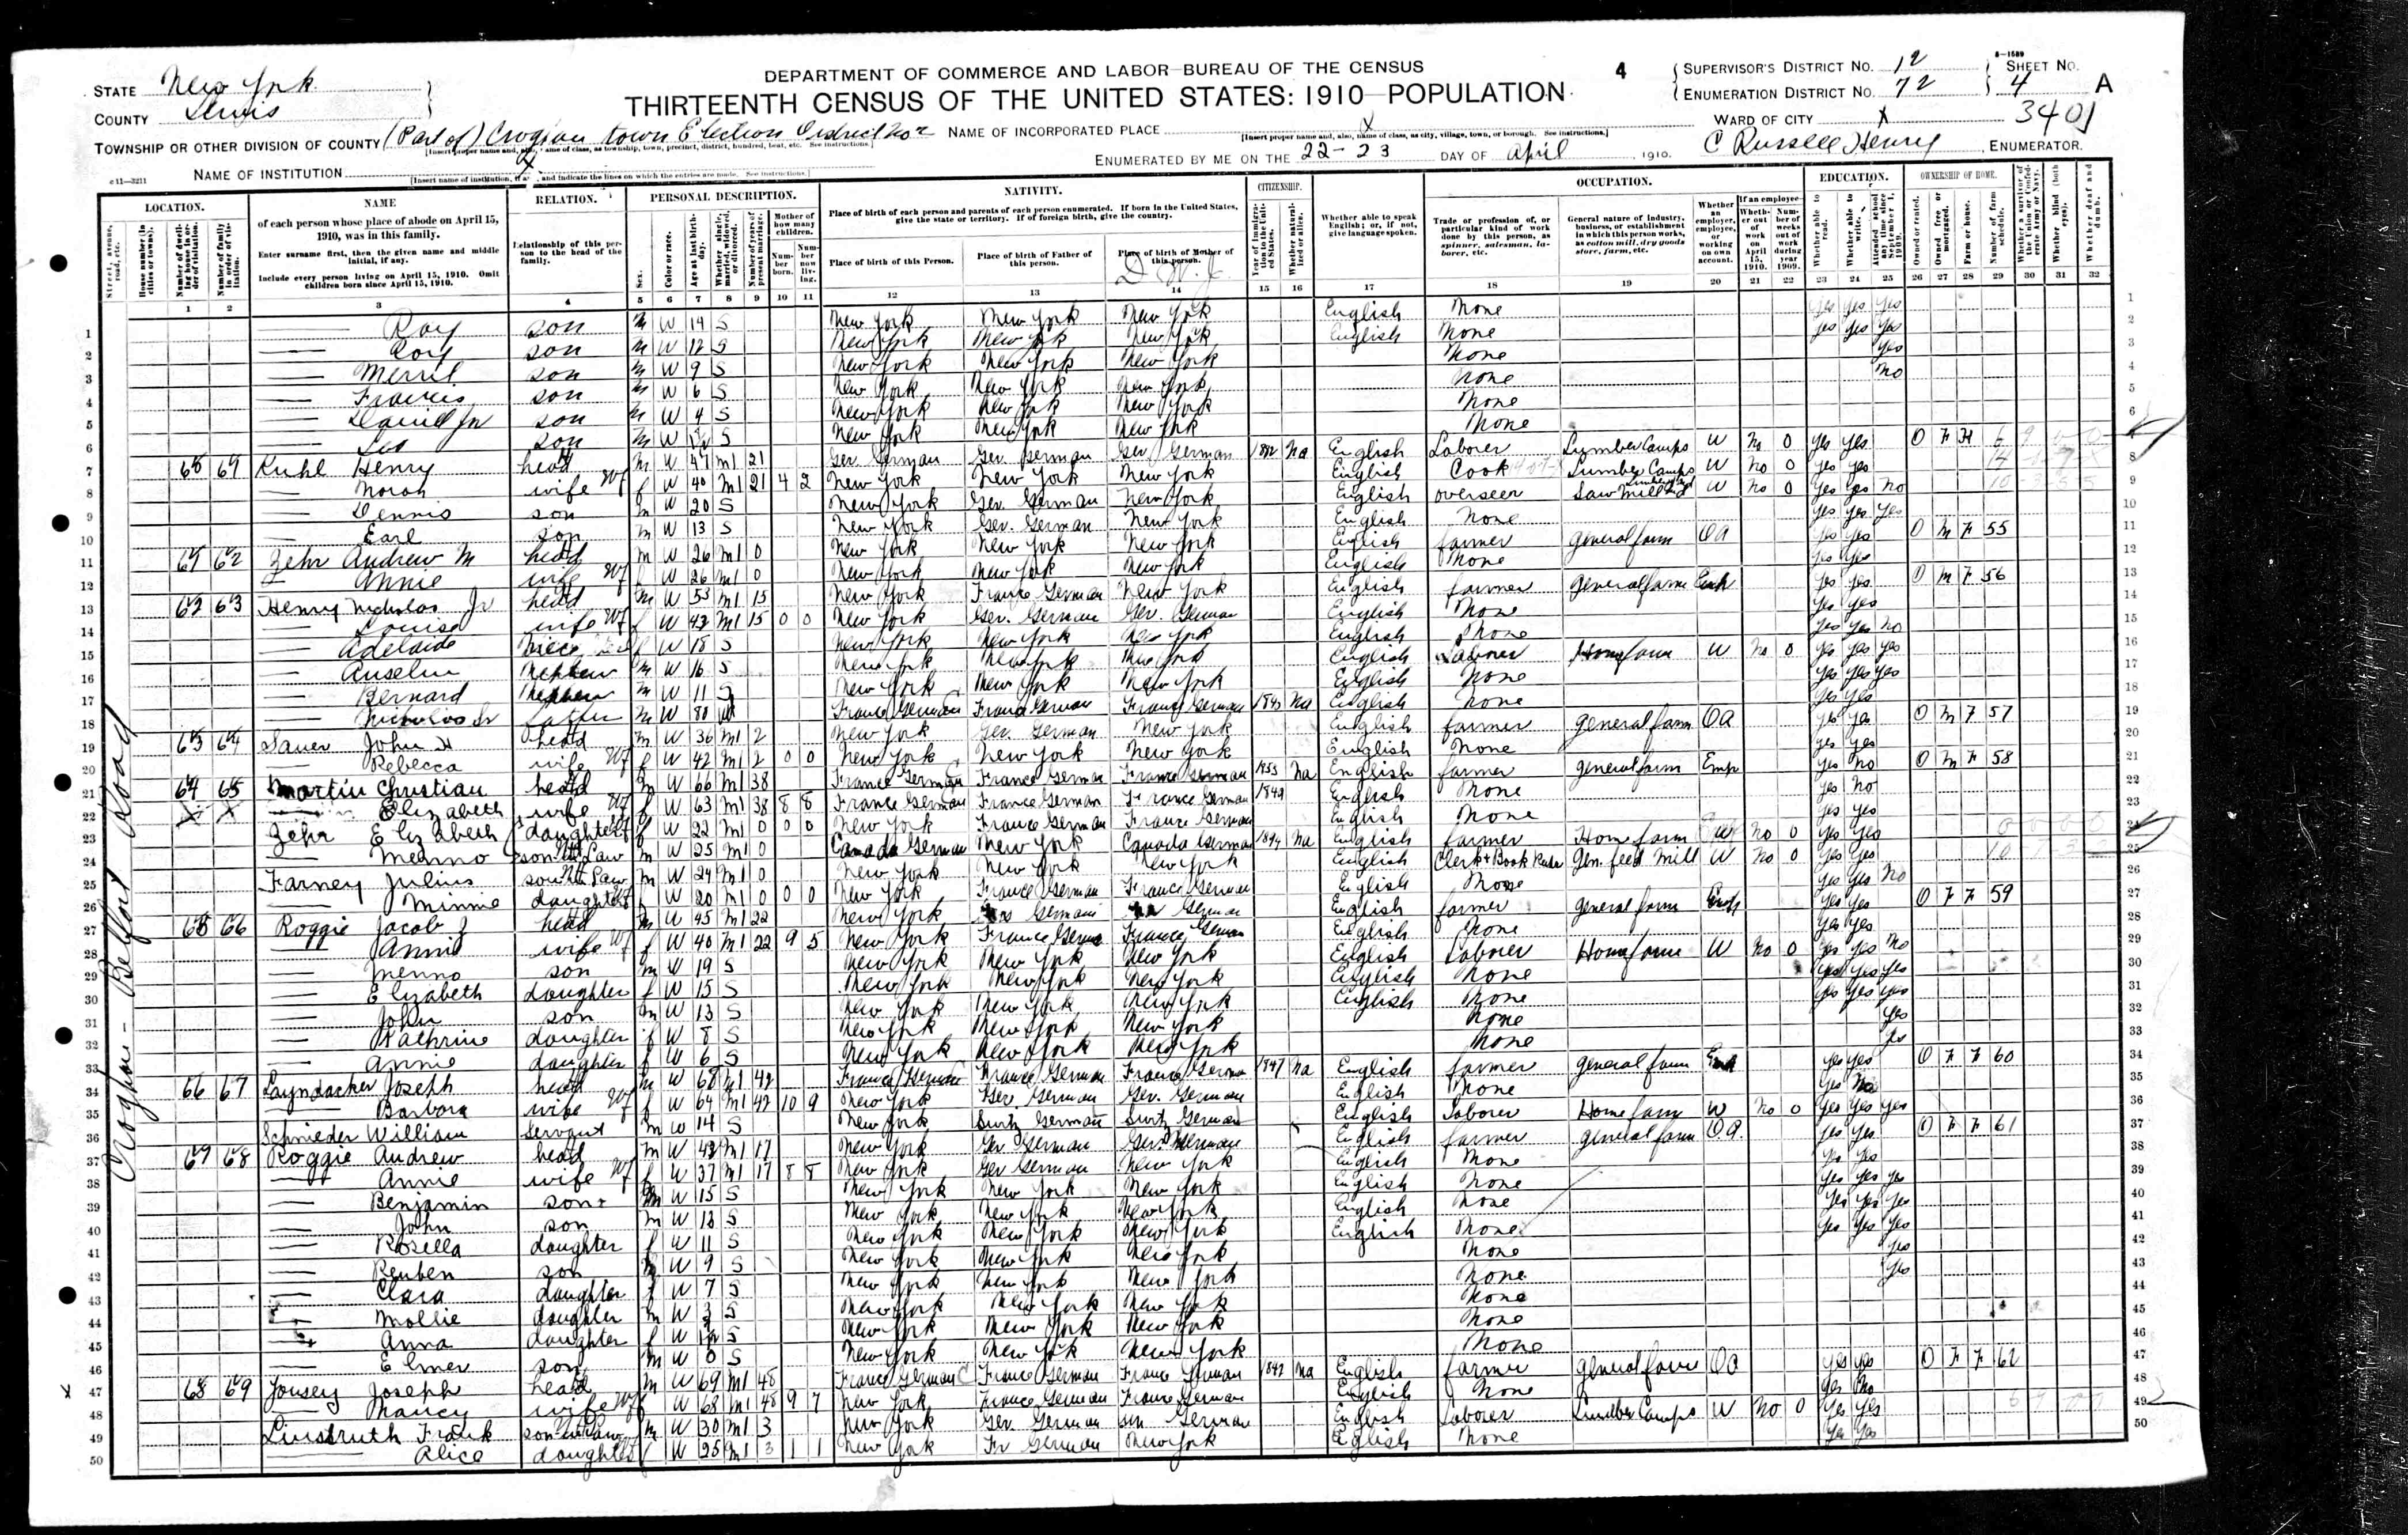 DEPARTMENT OF COMMERCE AND LABOR—BUREAU OF THE CENSUS
THIRTEENTH CENSUS OF THE UNITED STATES: 1910—POPULATION
STATE New York
COUNTY Lewis
TOWNSHIP OR OTHER DIVISION OF COUNTY (Part of) Croghan town Election District No 2
NAME OF INSTITUTION X
NAME OF INCORPORATED PLACE X
ENUMERATED BY ME ON THE 22-23 DAY OF April, 1910.
C Russell Henry, ENUMERATOR.
SUPERVISOR'S DISTRICT No. 12
ENUMERATION DISTRICT No. 72
SHEET No. 4 A
WARD OF CITY X
3401
4
8-1589
c 11—3211
LOCATION. NAME RELATION. PERSONAL DESCRIPTION. NATIVITY. CITIZENSHIP. OCCUPATION. EDUCATION. OWNERSHIP OF HOME.
of each person whose place of abode on April 15, 1910, was in this family.
Enter surname first, then the given name and middle initial, if any.
Include every person living on April 15, 1910. Omit children born since April 15, 1910.
Relationship of this person to the head of the family.
Place of birth of each person and parents of each person enumerated. If born in the United States, give the state or territory. If of foreign birth, give the country.
Place of birth of this Person. Place of birth of Father of this person. Place of birth of Mother of this person.
Whether able to speak English; or, if not, give language spoken.
Trade or profession of, or particular kind of work done by this person, as spinner, salesman, laborer, etc.
General nature of industry, business, or establishment in which this person works, as cotton mill, dry goods store, farm, etc.
Croghan - Belfort Road
1 Roy son M W 14 S New York New York New York English None yes yes yes
2 son M W 12 S New York New York New York English None yes yes yes
3 Merril son M W 9 S New York New York New York None yes
4 Francis son M W 6 S New York New York New York None no
5 Daniel Jr son M W 4 S New York New York New York None
6 Leo son M W S New York New York New York None
7 Kuhl Henry head M W 47 M1 21 Ger. German Ger. German Ger. German Na English Laborer Lumber Camps W No 0 yes yes O F H
8 Norah wife f W 40 M1 21 4 2 New York New York New York English Cook Lumber Camps W No 0 yes yes
9 Dennis son m W 20 S New York Ger. German New York English overseer Saw Mill W No 0 yes yes No
10 Earl son m W 13 S New York Ger. German New York English None yes yes yes
11 61 62 Zehr Andrew M head m W 26 M1 0 New York New York New York English farmer general farm OA yes yes O M F 55
12 Annie wife f W 26 M1 0 New York New York New York English None yes yes
13 62 63 Henry Nicholas Jr head M W 53 M1 15 New York France German New York English farmer general farm Emp yes yes O M F 56
14 Louisa wife f W 43 M1 15 0 0 New York Ger. German Ger. German English None yes yes
15 Adelaide Niece f W 18 S New York New York New York English None yes yes No
16 Anselm Nephew m W 16 S New York New York New York English Laborer Home farm W No 0 yes yes yes
17 Bernard Nephew m W 11 S New York New York New York English None yes yes yes
18 Nicholas Sr father M W 80 France German France German France German Na English None yes yes
19 63 64 Sauer John H head m W 36 M1 2 New York Ger. German New York English farmer general farm OA yes yes O M F 57
20 Rebecca wife f W 42 M1 2 0 0 New York New York New York English None yes yes
21 64 65 Martin Christian head m W 66 M1 38 France German France German France German 1853 Na English farmer general farm Emp yes No O M F 58
22 X X Elizabeth wife f W 63 M1 38 8 8 France German France German France German English None yes No
23 Zehr Elizabeth daughter f W 22 M1 0 0 0 New York France German France German English None yes yes
24 Menno son in Law m W 25 M1 0 Canada German New York Canada German Na English farmer Home farm W No 0 yes yes
25 Farney Julius son in Law m W 24 M1 0 New York New York New York English Clerk + Book Keeper Gen. feed Mill W No 0 yes yes
26 Minnie daughter f W 20 M1 0 0 0 New York France German France German English None yes yes No
27 65 66 Roggie Jacob J head m W 45 M1 22 New York German German English farmer general farm Emp yes yes O F F 59
28 Annie wife f W 40 M1 22 9 5 New York France German France German English None yes yes
29 Menno son m W 19 S New York New York New York English Laborer Home farm W No 0 yes yes No
30 Elizabeth daughter f W 15 S New York New York New York English None yes yes yes
31 John son m W 13 S New York New York New York English None yes yes yes
32 Kathrine daughter f W 8 S New York New York New York None yes
33 Annie daughter f W 6 S New York New York New York None yes
34 66 67 Joseph head m W 68 M1 42 France German France German France German 1847 Na English farmer general farm yes yes O F F 60
35 Barbara wife f W 64 M1 42 10 9 New York Ger. German Ger. German English None yes No
36 Schnieder William servant m W 14 S New York Switz German Switz German English Laborer Home farm W No 0 yes yes yes
37 67 68 Roggie Andrew head m W 43 M1 17 New York Ger German Ger. German English farmer general farm OA yes yes O F F 61
38 Annie wife f W 37 M1 17 8 8 New York Ger German New York English None yes yes
39 Benjamin son m W 15 S New York New York New York English None yes yes yes
40 John son m W 13 S New York New York New York English None yes yes yes
41 Rosella daughter f W 11 S New York New York New York English None yes yes yes
42 Reuben son m W 9 S New York New York New York None yes
43 Clara daughter f W 7 S New York New York New York None yes
44 Mollie daughter W 3 S New York New York New York None
45 Anna daughter f W S New York New York New York None
46 Elmer son m W 0 S New York New York New York None
47 68 69 Yousey Joseph head m W 69 M1 48 France German France German France German 1842 Na English farmer general farm OA yes yes O F F 62
48 Nancy wife f W 68 M1 48 9 7 New York France German France German English None yes No
49 Linstruth Frank son in law m W 30 M1 3 New York Ger. German Ger. German English Laborer Lumber Camps W No 0 yes yes
50 Alice daughter f W 25 M1 3 1 1 New York Fr German New York English None yes yes